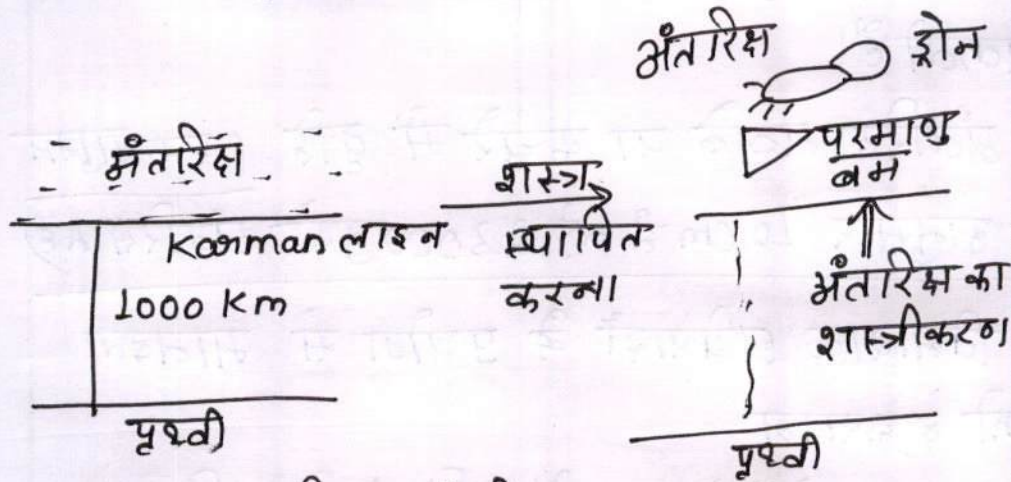 अंतरिक्ष
Karman लाइन
1000 Km
पृथ्वी
शस्त्र
स्थापित
करना
अंतरिक्ष
ड्रोन
परमाणु
बम
अंतरिक्ष का
शस्त्रीकरण
पृथ्वी